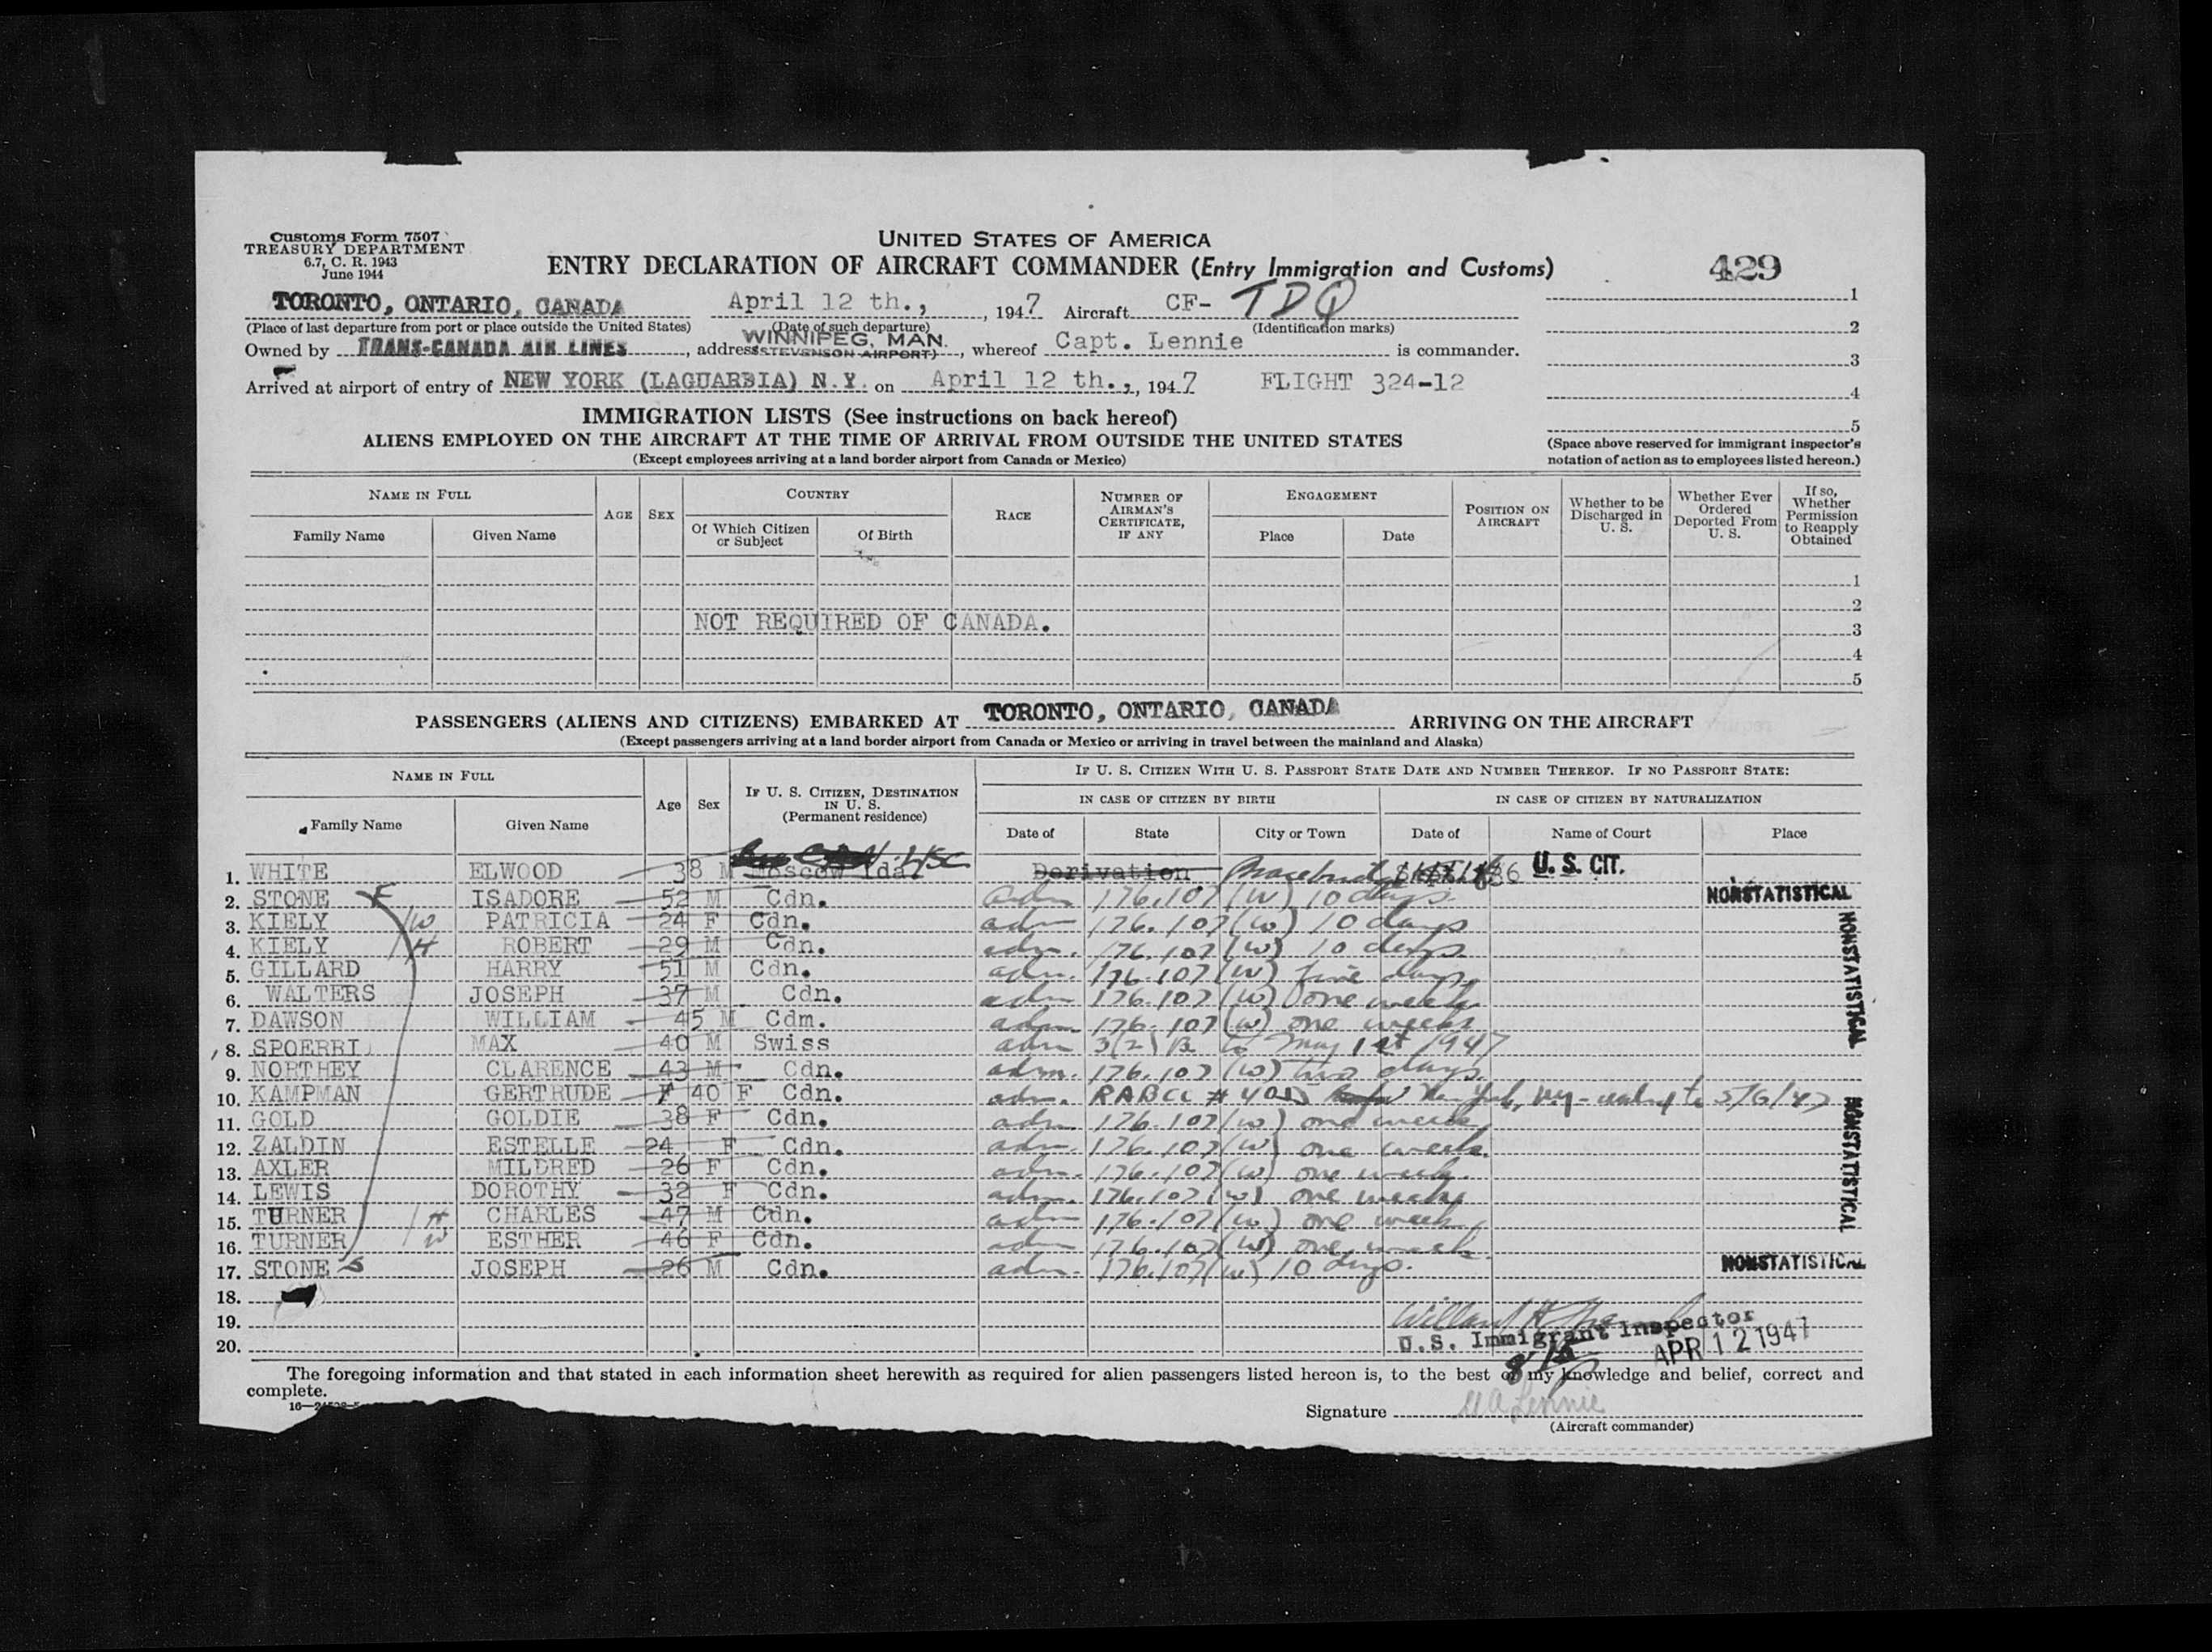 Customs Form 7507
TREASURY DEPARTMENT
6.7, C. R. 1943
June 1944
UNITED STATES OF AMERICA
ENTRY DECLARATION OF AIRCRAFT COMMANDER (Entry Immigration and Customs)
429
TORONTO, ONTARIO, CANADA April 12 th., , 1947 Aircraft CF- TDQ 1
(Place of last departure from port or place outside the United States) (Date of such departure) (Identification marks) 2
Owned by TRANS-CANADA AIR LINES , address WINNIPEG, MAN. (STEVENSON AIRPORT) , whereof Capt. Lennie is commander. 3
Arrived at airport of entry of NEW YORK (LAGUARDIA) N.Y. on April 12 th., , 1947 FLIGHT 324-12 4
IMMIGRATION LISTS (See instructions on back hereof) 5
ALIENS EMPLOYED ON THE AIRCRAFT AT THE TIME OF ARRIVAL FROM OUTSIDE THE UNITED STATES
(Except employees arriving at a land border airport from Canada or Mexico)
(Space above reserved for immigrant inspector's
notation of action as to employees listed hereon.)
NAME IN FULL AGE SEX COUNTRY RACE NUMBER OF AIRMAN'S CERTIFICATE, IF ANY ENGAGEMENT POSITION ON AIRCRAFT Whether to be Discharged in U. S. Whether Ever Ordered Deported From U. S. If so, Whether Permission to Reapply Obtained
Family Name Given Name Of Which Citizen or Subject Of Birth Place Date
1
2
NOT REQUIRED OF CANADA. 3
4
5
PASSENGERS (ALIENS AND CITIZENS) EMBARKED AT TORONTO, ONTARIO, CANADA ARRIVING ON THE AIRCRAFT
(Except passengers arriving at a land border airport from Canada or Mexico or arriving in travel between the mainland and Alaska)
NAME IN FULL Age Sex IF U. S. CITIZEN, DESTINATION IN U. S. (Permanent residence) IF U. S. CITIZEN WITH U. S. PASSPORT STATE DATE AND NUMBER THEREOF. IF NO PASSPORT STATE:
IN CASE OF CITIZEN BY BIRTH IN CASE OF CITIZEN BY NATURALIZATION
Family Name Given Name Date of State City or Town Date of Name of Court Place
1. WHITE ELWOOD 38 M Moscow Ida. USC Derivation U. S. CIT.
2. STONE F ISADORE 52 M Cdn. adm 176.107 (W) 10 days NONSTATISTICAL
3. KIELY W PATRICIA 24 F Cdn. adm 176.107 (W) 10 days
4. KIELY H ROBERT 29 M Cdn. adm. 176.107 (W) 10 days.
5. GILLARD HARRY 51 M Cdn. adm. 176.107 (W) five days.
6. WALTERS JOSEPH 37 M Cdn. adm 176.107 (W) one week
7. DAWSON WILLIAM 45 M Cdm. adm. 176.107 (W) one week
8. SPOERRI MAX 40 M Swiss adm 3(2) B to May 1st 1947
9. NORTHEY CLARENCE 43 M Cdn. adm. 176.107 (W) two days.
10. KAMPMAN GERTRUDE F 40 F Cdn. adm. RABCC # New York, to 5/6/47
11. GOLD GOLDIE 38 F Cdn. adm. 176.107 (W) one week
12. ZALDIN ESTELLE 24 F Cdn. adm. 176.107 (W) one week.
13. AXLER MILDRED 26 F Cdn. adm. 176.107 (W) one week.
14. LEWIS DOROTHY 32 F Cdn. adm. 176.107 (W) one week
15. TURNER H CHARLES 47 M Cdn. adm 176.107 (W) one week
16. TURNER W ESTHER 46 F Cdn. adm 176.107 (W) one week.
17. STONE S JOSEPH 26 M Cdn. adm. 176.107 (W) 10 days. NONSTATISTICAL
NONSTATISTICAL
NONSTATISTICAL
18.
19. Willard H.
20. U.S. Immigrant Inspector APR 12 1947
The foregoing information and that stated in each information sheet herewith as required for alien passengers listed hereon is, to the best of my knowledge and belief, correct and
complete.
Signature Lennie
(Aircraft commander)